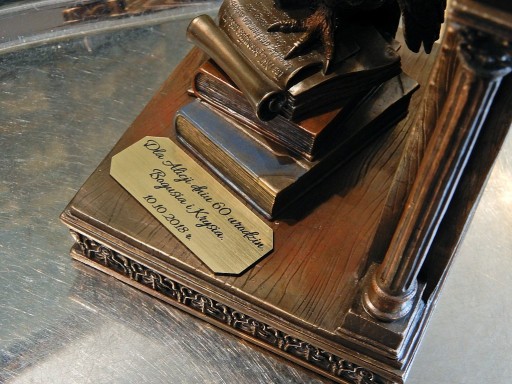 Dla Alicji dniu 60 urodzin
Bogusia i Krysia.
10.10.2018 r.